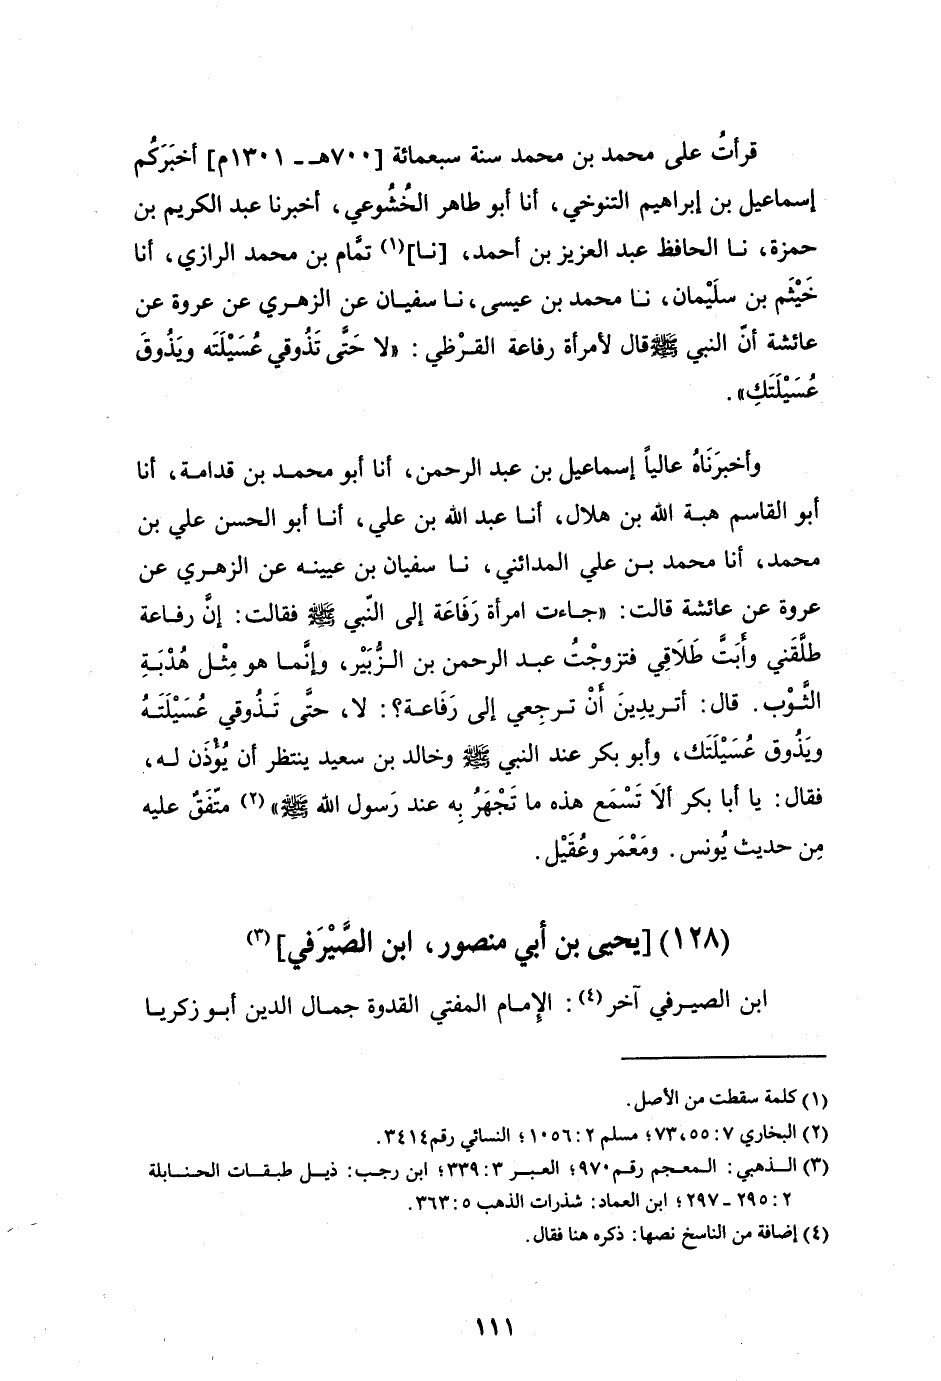 قرأتُ على محمد بن محمد سنة سبعمائة [٧٠٠هـ - ١٣٠١م] أخبَرَكُم
إسماعيل بن إبراهيم التنوخي، أنا أبو طاهر الخُشُوعي، أخبرنا عبد الكريم بن
حمزة، نا الحافظ عبد العزيز بن أحمد، [نا](١) تمَّام بن محمد الرازي، أنا
خَيْثَم بن سلَيْمان، نا محمد بن عيسى، نا سفيان عن الزهري عن عروة عن
عائشة أنّ النبي ﷺ قال لأمرأة رفاعة القرْظي: «لا حَتَّى تَذُوقي عُسَيْلَتَه ويَذُوقَ
عُسَيْلَتَكِ».
وأخبرَنَاهُ عالياً إسماعيل بن عبد الرحمن، أنا أبو محمد بن قدامة، أنا
أبو القاسم هبة الله بن هلال، أنا عبد الله بن علي، أنا أبو الحسن علي بن
محمد، أنا محمد بن علي المدائني، نا سفيان بن عيينه عن الزهري عن
عروة عن عائشة قالت: «جاءت امرأة رَفَاعَة إلى النّبي ﷺ فقالت: إنَّ رفاعة
طلَّقَني وأَبَتَّ طَلَاقِي فتزوجْتُ عبد الرحمن بن الزُّبَيْر، وإنَّما هو مِثْل هُدْبَةِ
الثَّوْب. قال: أتريدِينَ أَنْ ترجعي إلى رَفَاعة؟: لا، حتَّى تَذُوقي عُسَيْلَتَهُ
ويَذُوق عُسَيْلَتَك، وأبو بكر عند النبي ﷺ وخالد بن سعيد ينتظر أن يُؤْذَن له،
فقال: يا أبا بكر ألَا تَسْمَع هذه ما تَجْهَرُ بِه عند رَسول الله ﷺ»(٢) متّفَقٌ عليه
مِن حديث يُونس. ومَعْمَر وعُقَيْل.
(١٢٨) [يحيى بن أبي منصور، ابن الصَّيْرَفي](٣)
ابن الصيرفي آخر(٤): الإمام المفتي القدوة جمال الدين أبو زكريا
(١) كلمة سقطت من الأصل.
(٢) البخاري ٧: ٥٥، ٧٣؛ مسلم ٢: ١٠٥٦؛ النسائي رقم ٣٤١٤.
(٣) الذهبي: المعجم رقم ٩٧٠؛ العبر ٣: ٣٣٩؛ ابن رجب: ذيل طبقات الحنابلة
٢: ٢٩٥ - ٢٩٧؛ ابن العماد: شذرات الذهب ٥: ٣٦٣.
(٤) إضافة من الناسخ نصها: ذكره هنا فقال.
١١١